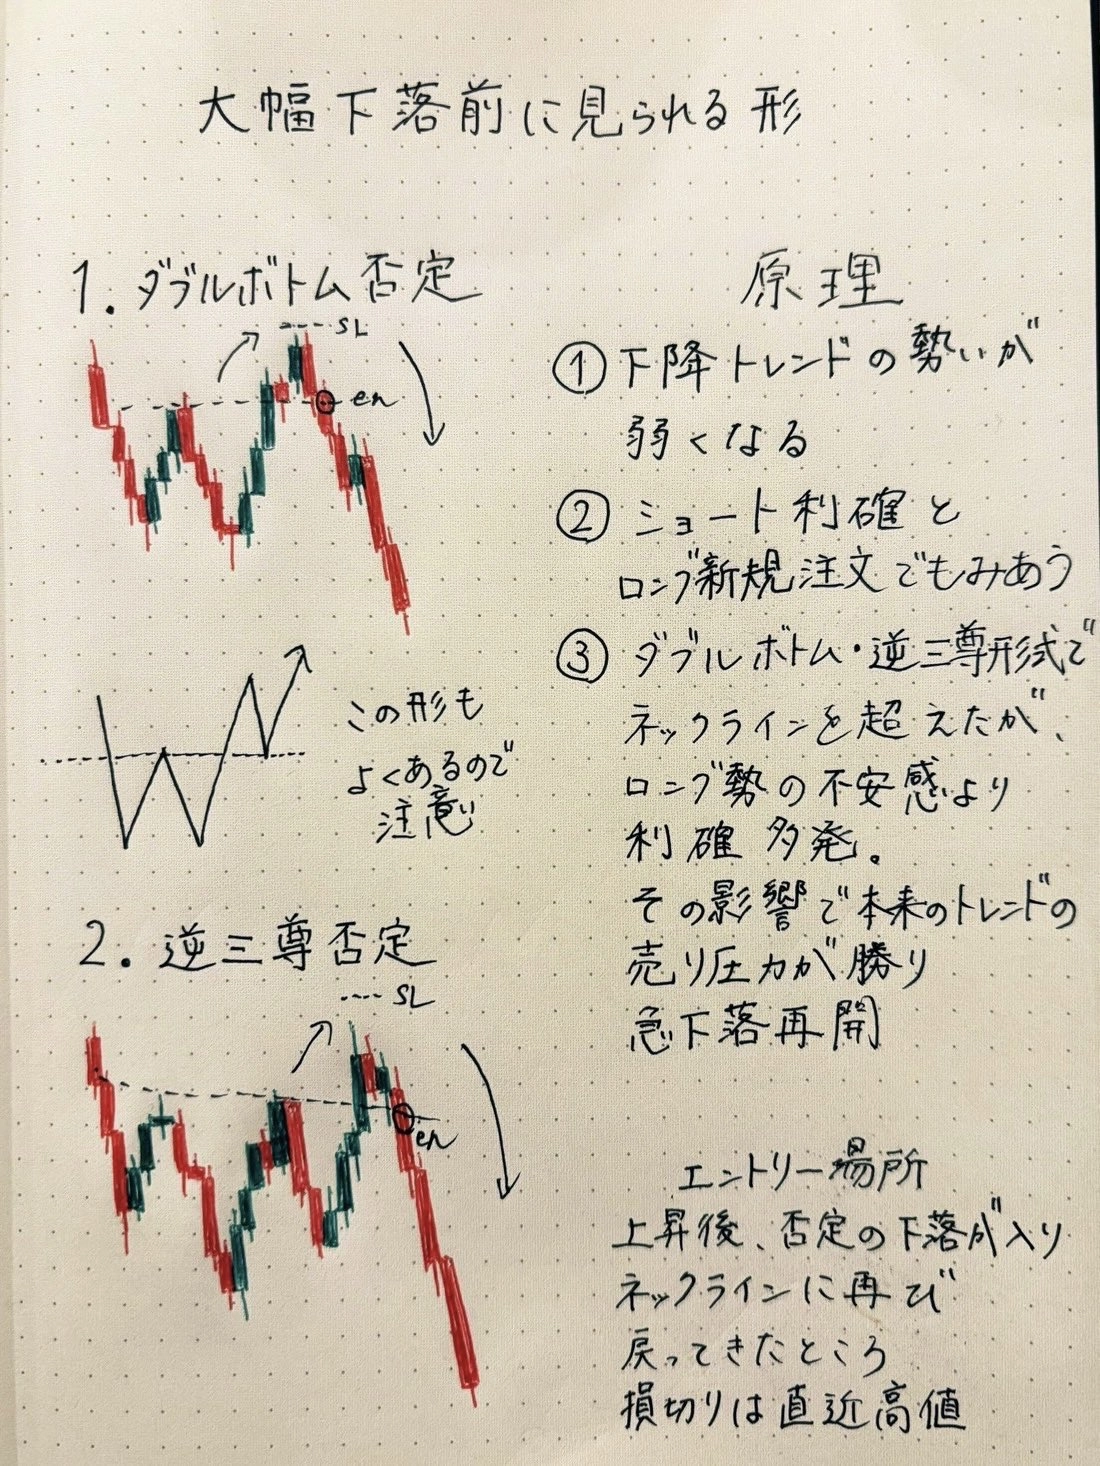 大幅下落前に見られる形
1. ダブルボトム否定
SL
en
この形も
よくあるので
注意
2. 逆三尊否定
SL
en
原理
① 下降トレンドの勢いが
弱くなる
② ショート利確と
ロング新規注文でもみあう
③ ダブルボトム・逆三尊形式で
ネックラインを超えたが、
ロング勢の不安感より
利確多発。
その影響で本来のトレンドの
売り圧力が勝り
急下落再開
エントリー場所
上昇後、否定の下落が入り
ネックラインに再び
戻ってきたところ
損切りは直近高値